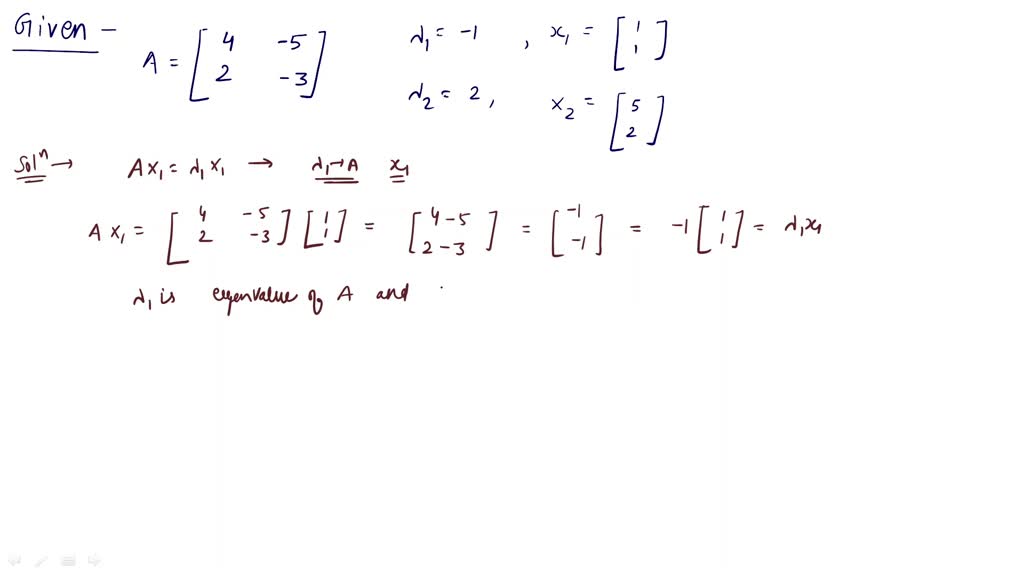 Given – A = [4 -5; 2 -3] λ₁ = -1 , x₁ = [1; 1]
λ₂ = 2 , x₂ = [5; 2]
Solⁿ → Ax₁ = λ₁x₁ → λ₁→A x₁
Ax₁ = [4 -5; 2 -3] [1; 1] = [4-5; 2-3] = [-1; -1] = -1 [1; 1] = λ₁x₁
λ₁ is eigenvalue of A and